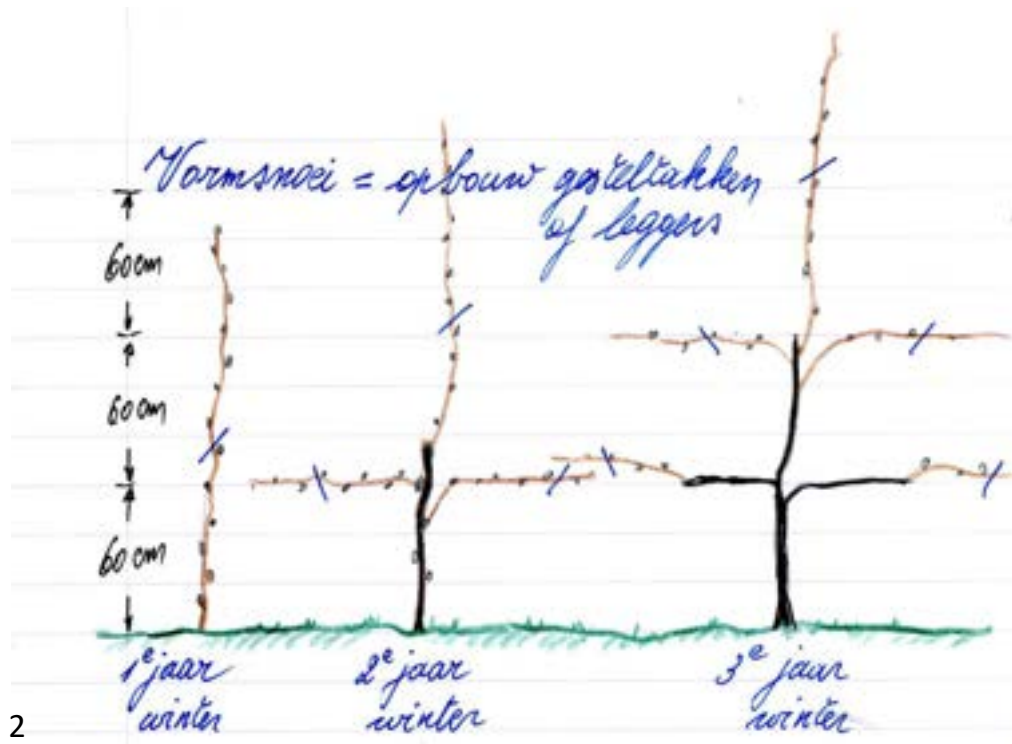 Vormsnoei = opbouw gesteltakken
of leggers
60cm
60cm
60cm
1e jaar
winter
2e jaar
winter
3e jaar
winter
2